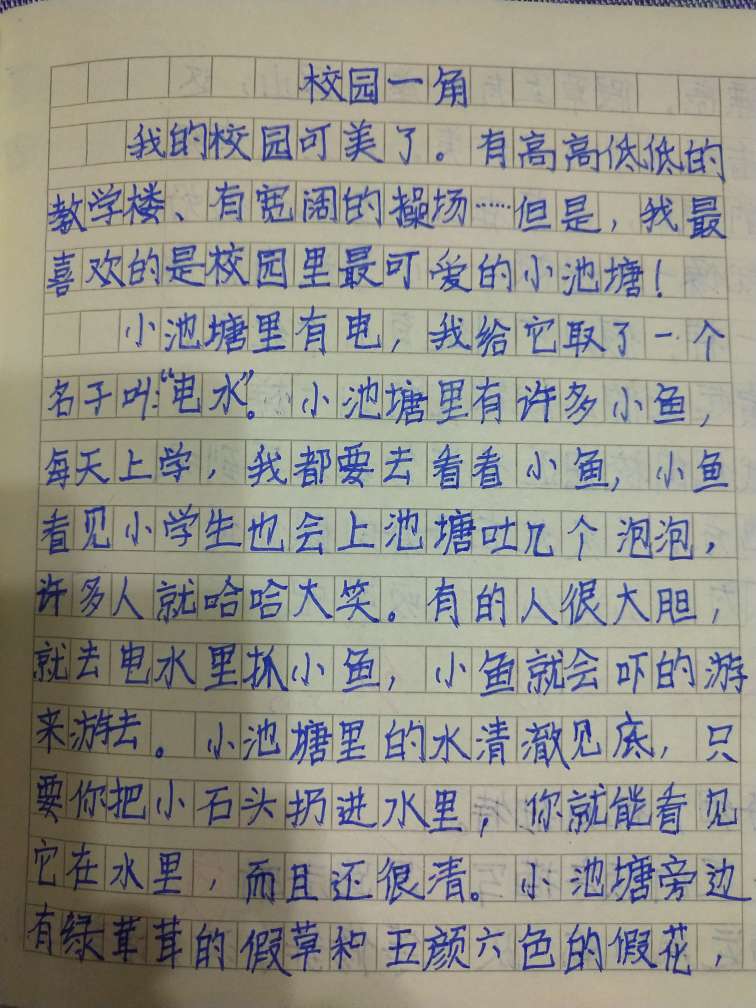 校园一角
我的校园可美了。有高高低低的
教学楼、有宽阔的操场……但是，我最
喜欢的是校园里最可爱的小池塘！
小池塘里有电，我给它取了一个
名子叫:“电水”。小池塘里有许多小鱼，
每天上学，我都要去看看小鱼，小鱼
看见小学生也会上池塘吐几个泡泡，
许多人就哈哈大笑。有的人很大胆，
就去电水里抓小鱼，小鱼就会吓的游
来游去。小池塘里的水清澈见底，只
要你把小石头扔进水里，你就能看见
它在水里，而且还很清。小池塘旁边
有绿茸茸的假草和五颜六色的假花，